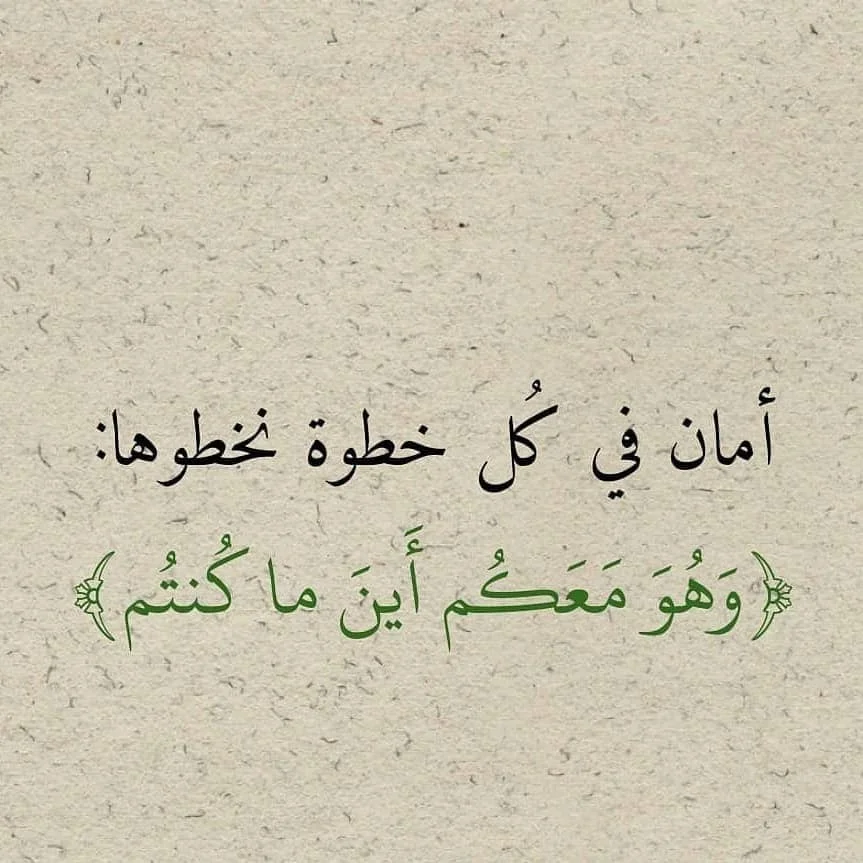 أمان في كُل خطوة نخطوها:
﴿وَهُوَ مَعَكُم أَينَ ما كُنتُم﴾